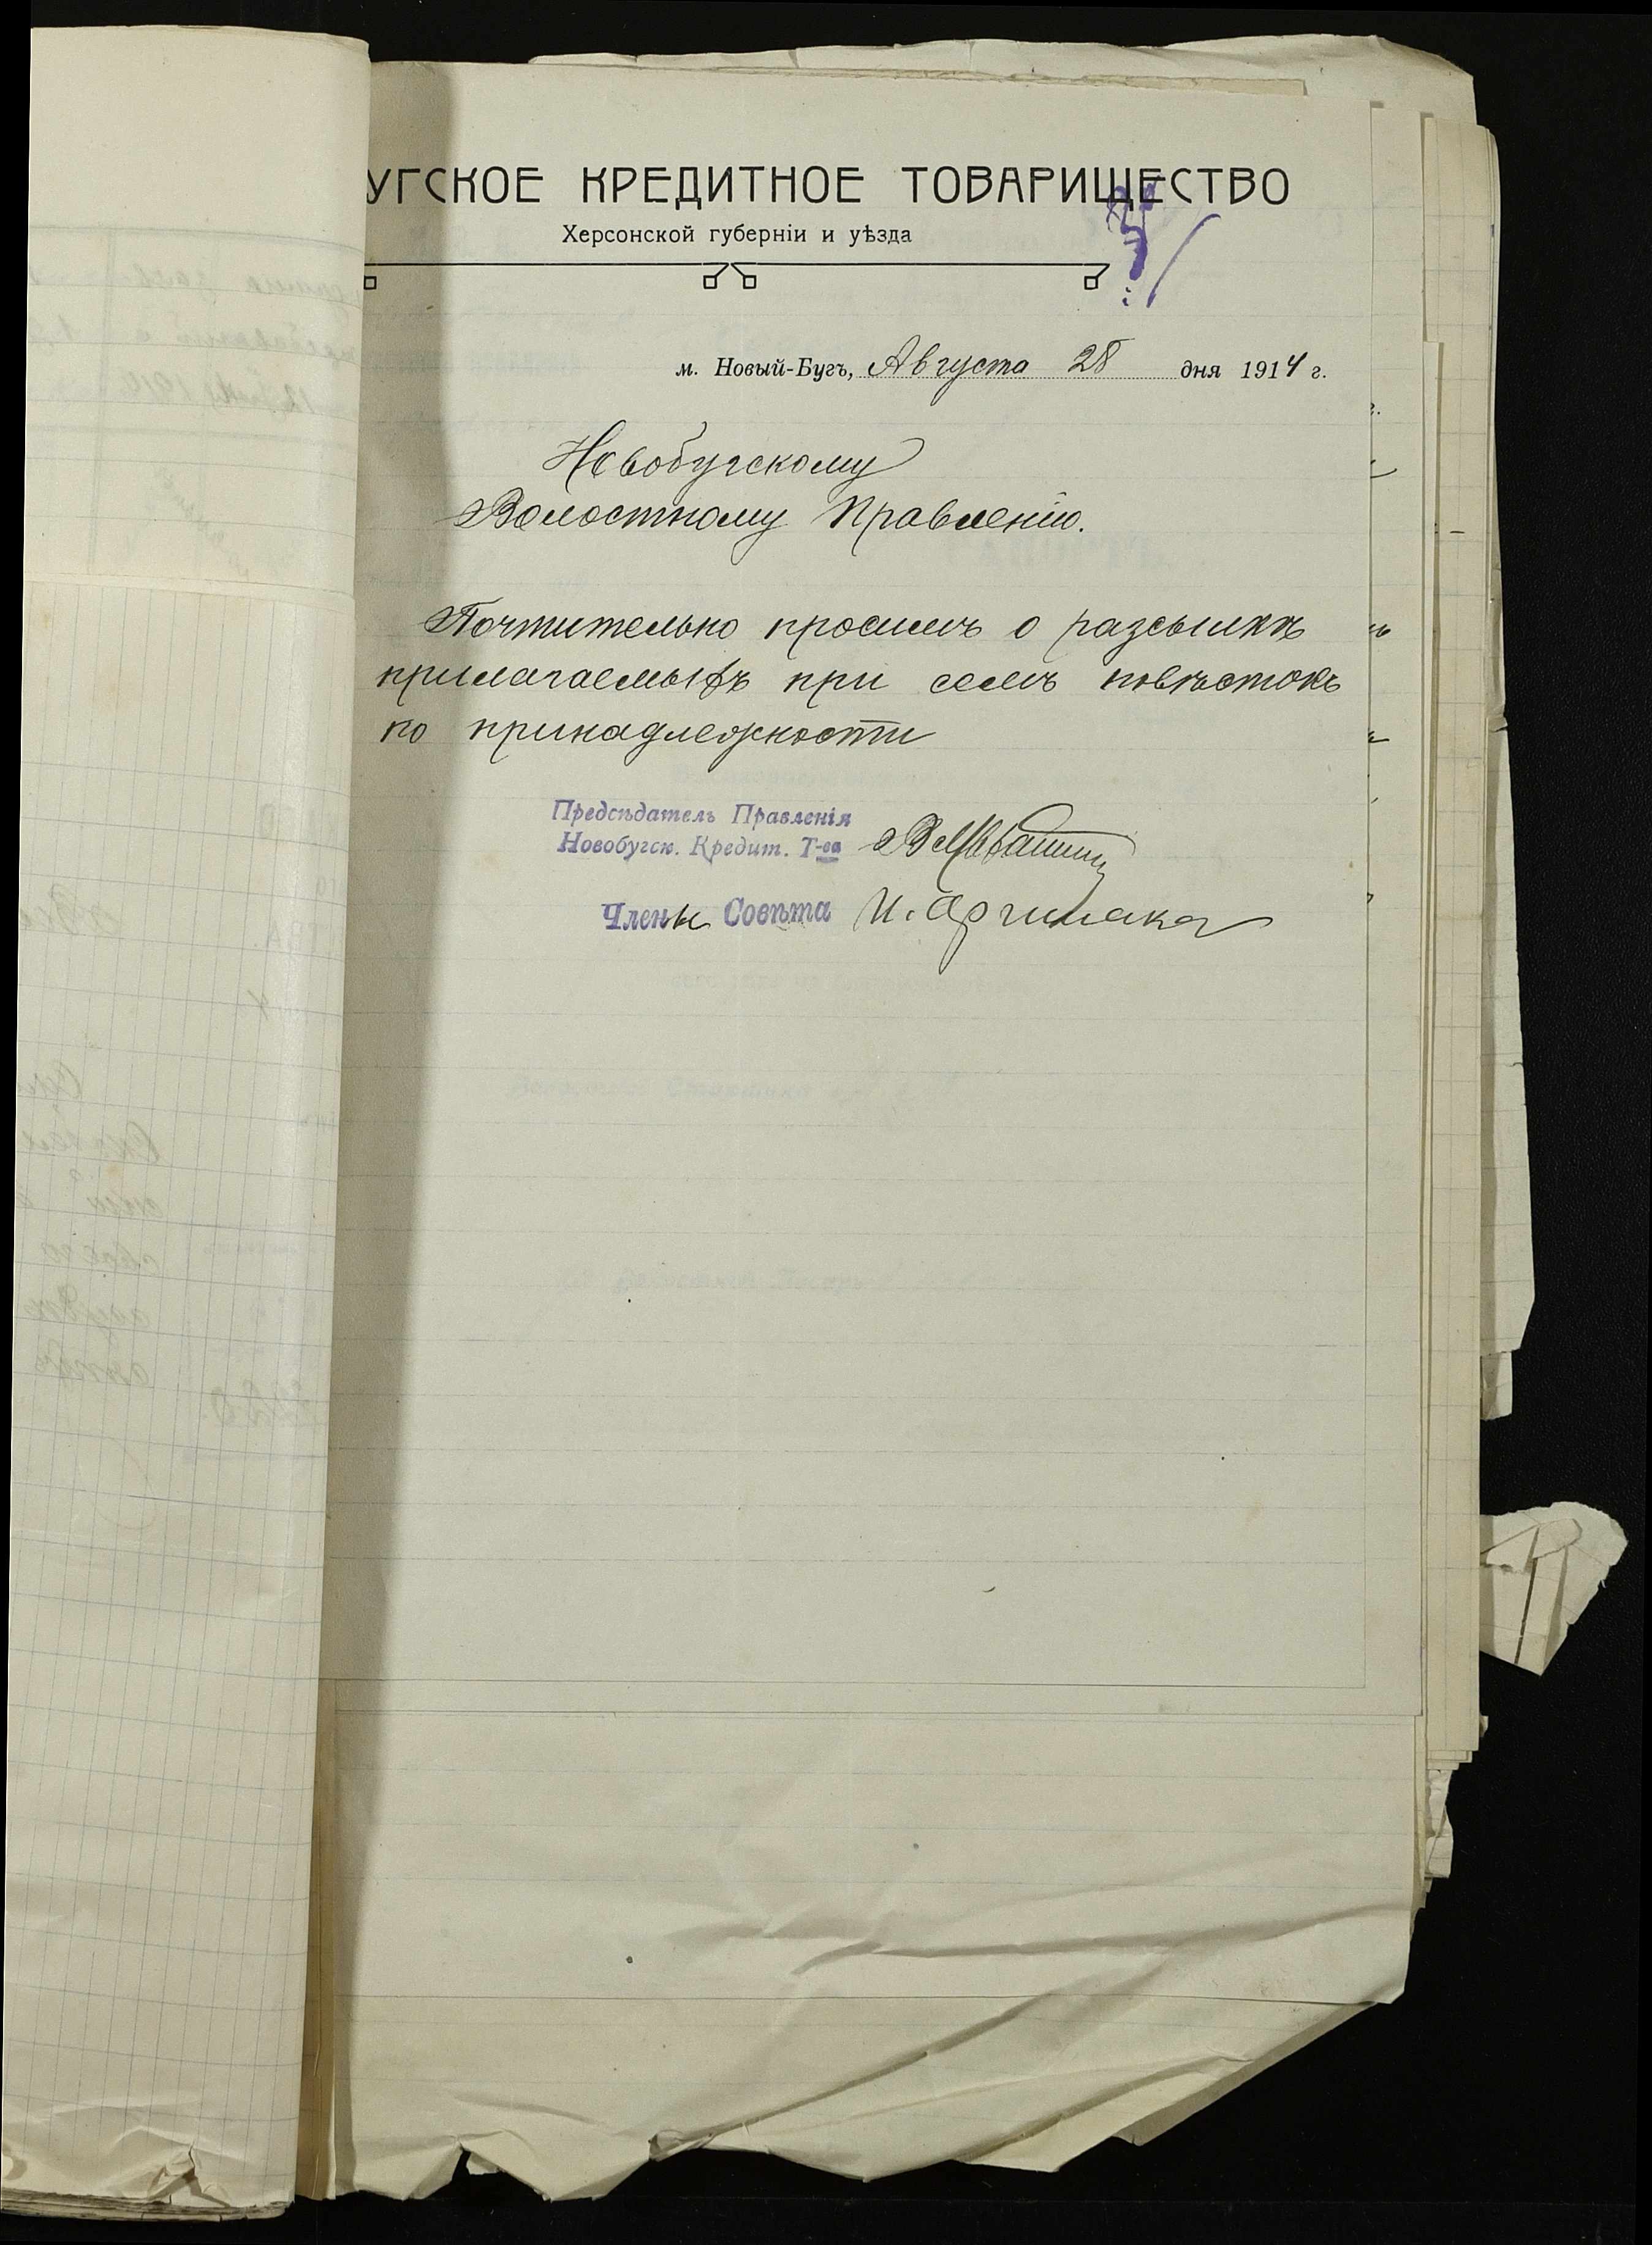 УГСКОЕ КРЕДИТНОЕ ТОВАРИЩЕСТВО
Херсонской губерніи и уѣзда
м. Новый-Бугъ, Августа 28 дня 1914 г.
Новобугскому
Волостному Правленію.
Почтительно просимъ о разсылкѣ
прилагаемыхъ при семъ повѣстокъ
по принадлежности
Предсѣдатель Правленія
Новобугск. Кредит. Т-ва
Члены Совѣта И.